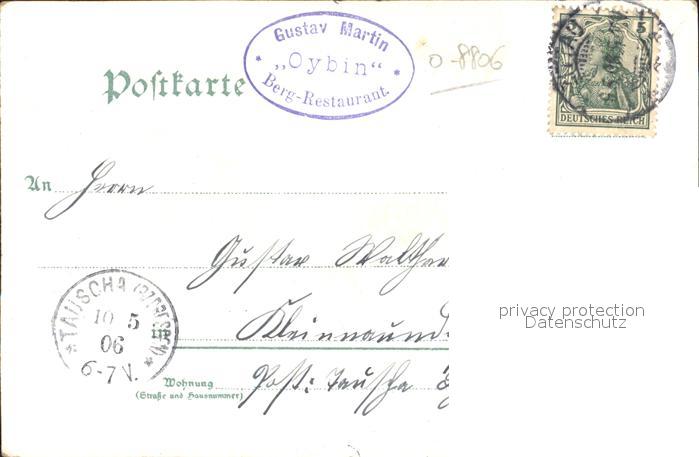 Gustav Martin
* „Oybin“ *
Berg-Restaurant.
o-8806
Postkarte
5
DEUTSCHES REICH
An Herrn
Gustav Walther
Kleinnaund
in
* TAUSCHA *
10 5
06
6-7 V.
Wohnung
(Straße und Hausnummer)
Post: Tauscha
privacy protection
Datenschutz